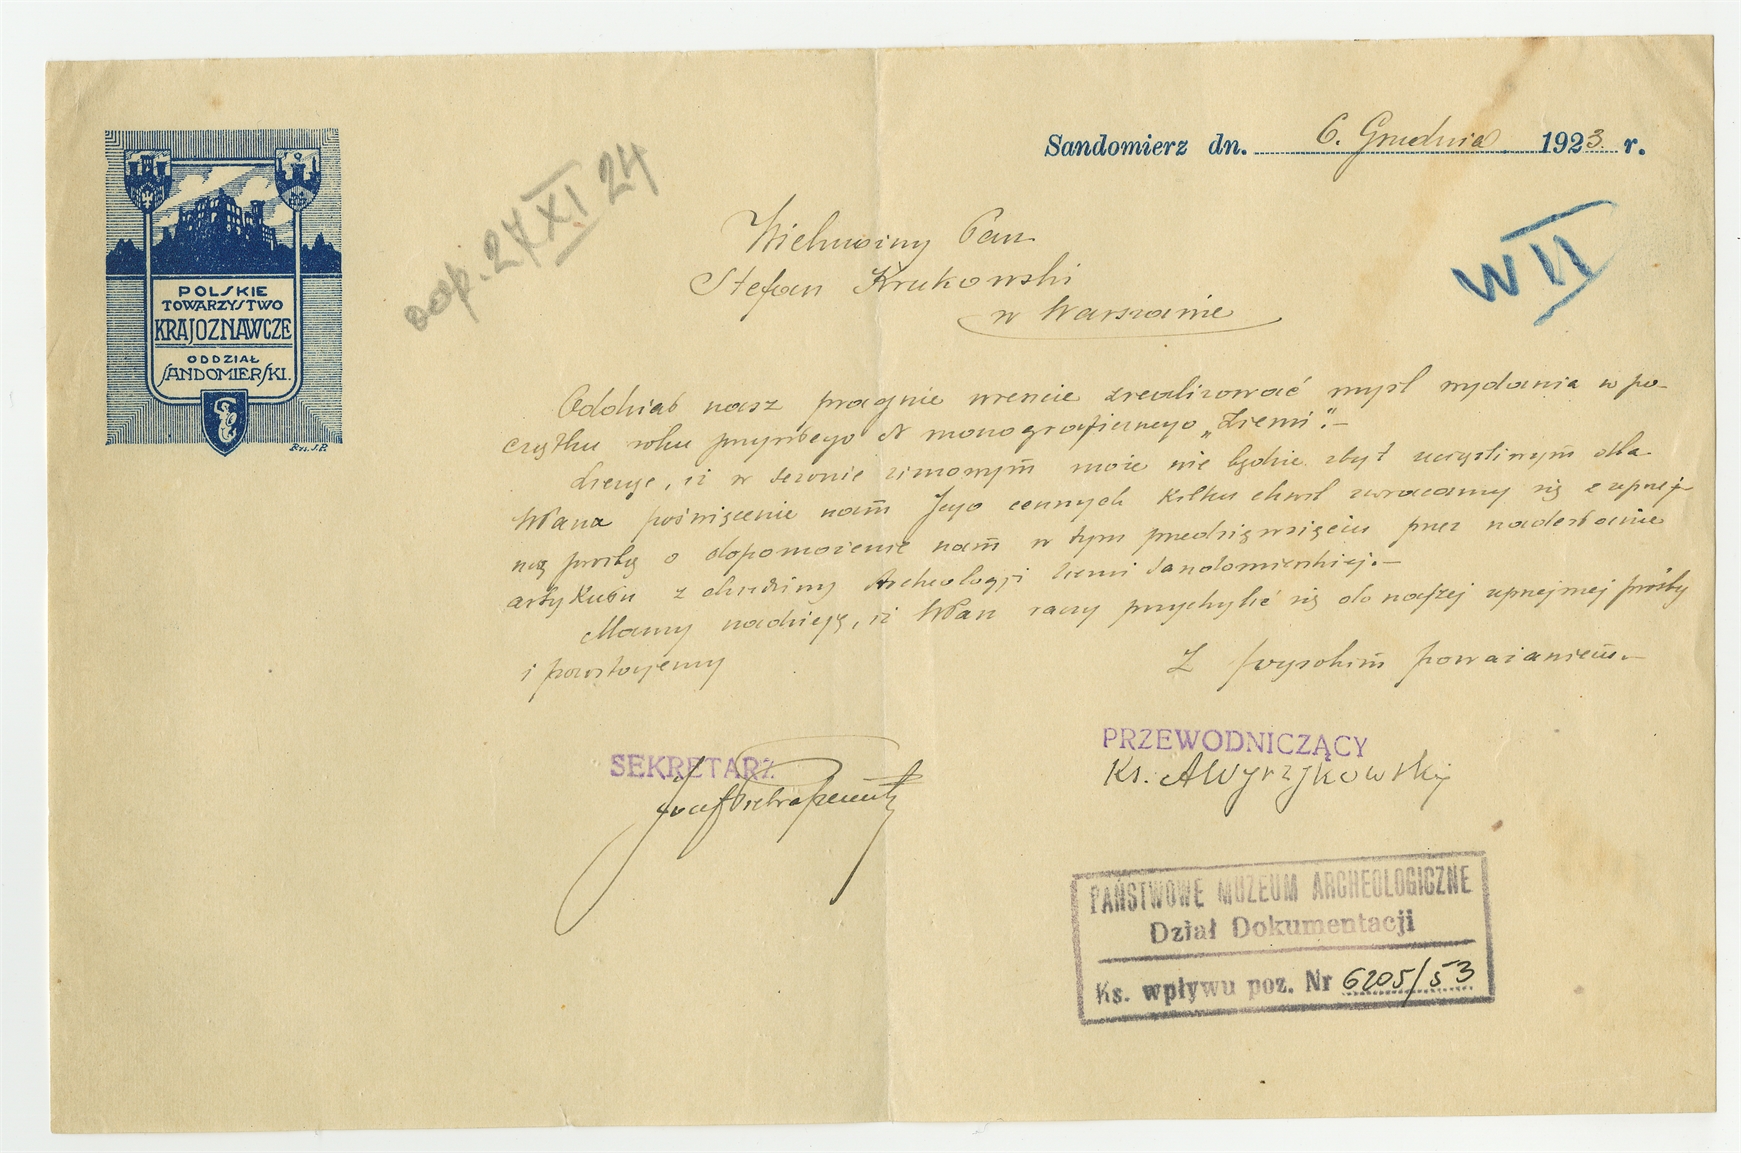 POLSKIE
TOWARZYSTWO
KRAJOZNAWCZE
ODDZIAŁ
SANDOMIERSKI.
Rys. J.P.
Sandomierz dn. 6. Grudnia 1923 r.
odp. 27 XI 24
W II
Wielmożny Pan
Stefan Krukowski
w Warszawie
Oddział nasz pragnie wreście zrealizować myśl wydania w po-
czątku roku przyszłego N monograficznego „Ziemi".-
Licząc, iż w sezonie zimowym może nie będzie zbyt uciążliwym dla
WPana poświęcenie nam Jego cennych kilku chwil zwracamy się z uprzej-
mą prośbą o dopomożenie nam w tym przedsięwzięciu przez nadesłanie
artykułu z dziedziny Archeologji ziemi Sandomierskiej.-
Mamy nadzieję, iż WPan raczy przychylić się do naszej uprzejmej prośby
i pozostajemy
Z wysokim poważaniem.-
SEKRETARZ
Józef Pietraszewski
PRZEWODNICZĄCY
Ks. A Wyrzykowski
PAŃSTWOWE MUZEUM ARCHEOLOGICZNE
Dział Dokumentacji
Ks. wpływu poz. Nr 6205/53